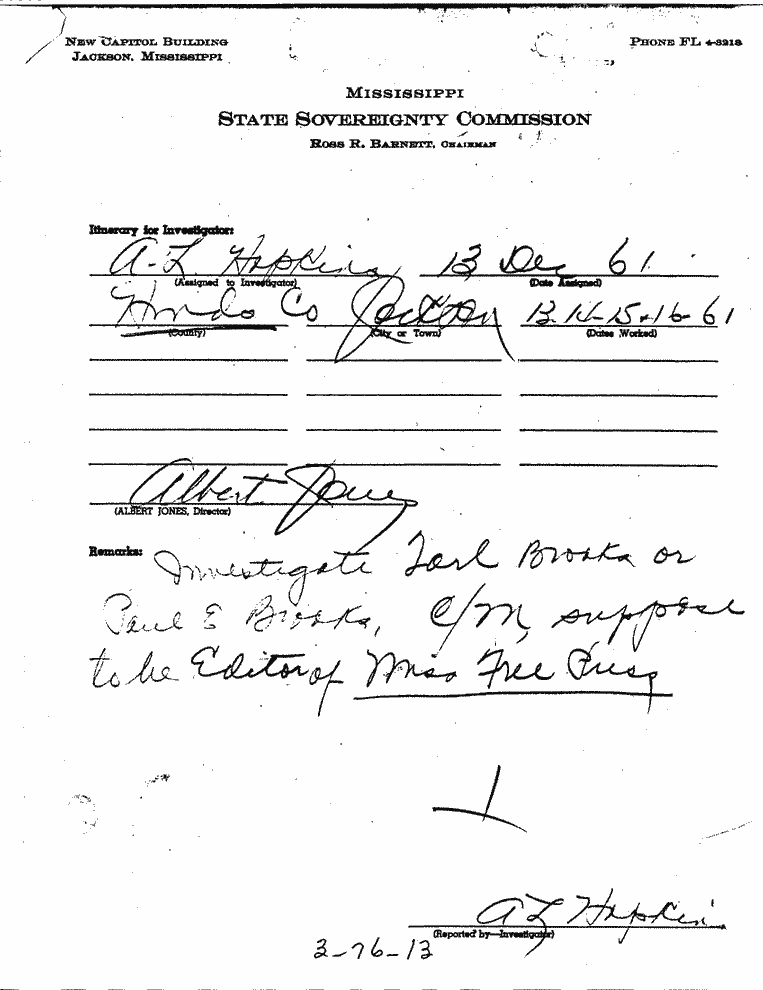 NEW CAPITOL BUILDING
JACKSON, MISSISSIPPI
PHONE FL 4-3218
MISSISSIPPI
STATE SOVEREIGNTY COMMISSION
ROSS R. BARNETT, CHAIRMAN
Itinerary for Investigator:
A-L Hopkins 13 Dec 61
(Assigned to Investigator) (Date Assigned)
Hinds Co Jackson 13-14-15-16-61
(County) (City or Town) (Dates Worked)
Albert Jones
(ALBERT JONES, Director)
Remarks: Investigate Earl Brooks or
Paul E Brooks, C/M, suppose
to be Editor of Miss Free Press
A L Hopkins
(Reported by—Investigator)
3-76-13